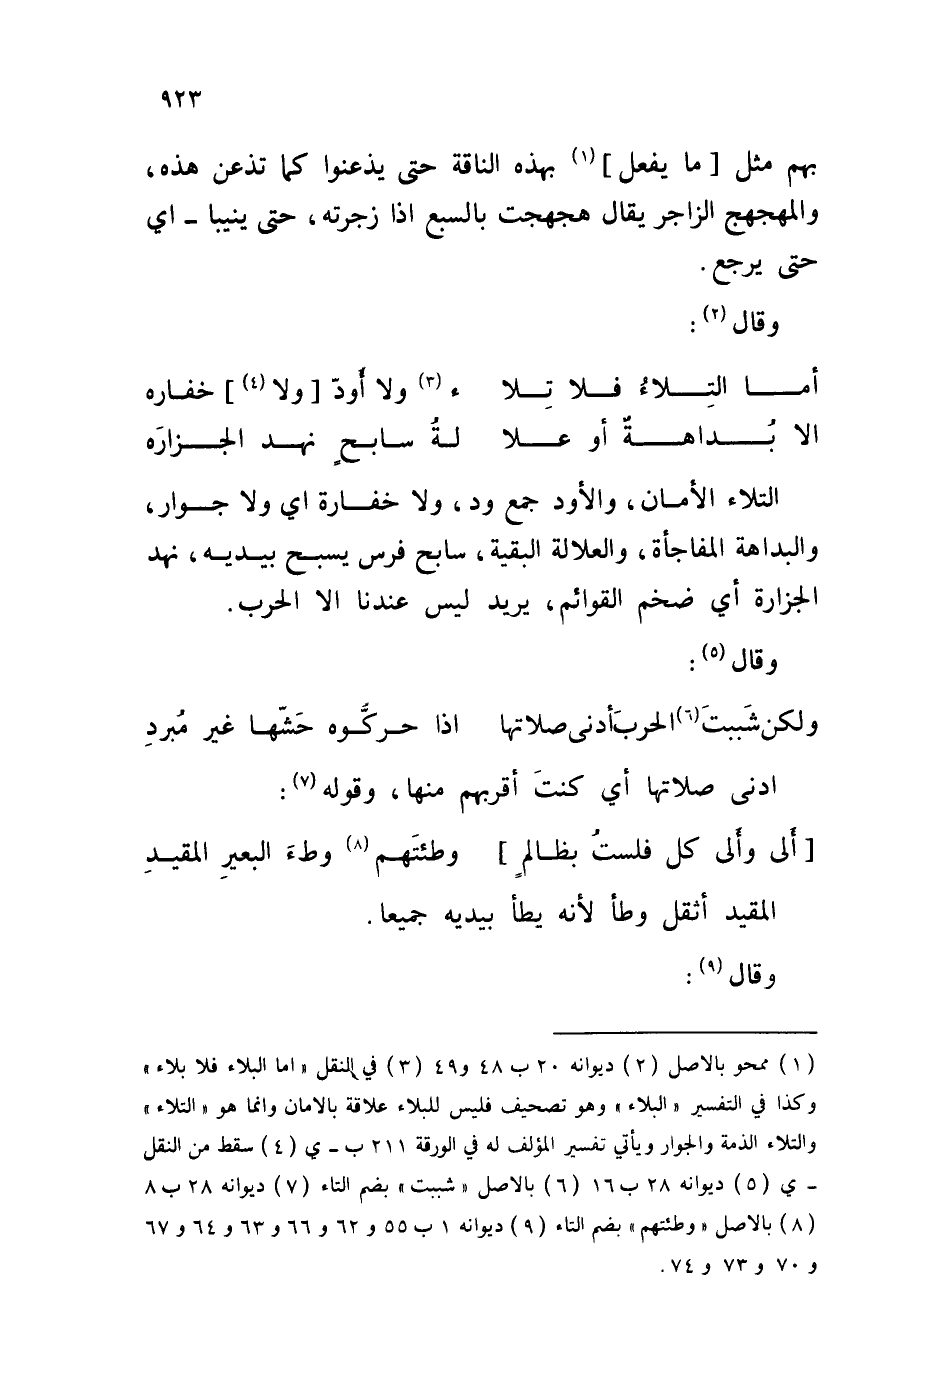 ٩٢٣
بهم مثل [ ما يفعل ] (١) بهذه الناقة حتى يذعنوا كما تذعن هذه ،
والمهجهج الزاجر يقال هجهجت بالسبع اذا زجرته ، حتى ينيبا ـ اي
حتى يرجع .
وقال (٢) :
أمـــا التِـــلاءُ فــلا تِــلا ء (٣) ولا أَودّ [ ولا (٤) ] خفــاره
الا بُـــداهـــةٌ أو عـــلا لــةُ ســابــحٍ نهــد الجــزارَه
التلاء الأمــان ، والأود جمع ود ، ولا خفــارة اي ولا جــوار ،
والبداهة المفاجأة ، والعلالة البقية ، سابح فرس يسبــح بيــديــه ، نهد
الجزارة أي ضخم القوائم ، يريد ليس عندنا الا الحرب .
وقال (٥) :
ولكن شَببتَ (٦) الحربَ أدنى صلاتها اذا حــركَّــوه حَشّهــا غير مُبردِ
ادنى صلاتها أي كنتَ أقربهم منها ، وقوله (٧) :
[ أَلى وأَلى كل فلستُ بظــالمٍ ] وطئتَهــم (٨) وطءَ البعيرِ المقيــدِ
المقيد أثقل وطأ لأنه يطأ بيديه جميعا .
وقال (٩) :
(١) ممحو بالاصل (٢) ديوانه ٢٠ ب ٤٨ و٤٩ (٣) في النقل « اما البلاء فلا بلاء »
وكذا في التفسير « البلاء » وهو تصحيف فليس للبلاء علاقة بالامان وانما هو « التلاء »
والتلاء الذمة والجوار ويأتي تفسير المؤلف له في الورقة ٢١١ ب ـ ي (٤) سقط من النقل
ـ ي (٥) ديوانه ٢٨ ب ١٦ (٦) بالاصل « شببت » بضم التاء (٧) ديوانه ٢٨ ب ٨
(٨) بالاصل « وطئتهم » بضم التاء (٩) ديوانه ١ ب ٥٥ و ٦٢ و ٦٦ و ٦٣ و ٦٤ و ٦٧
و ٧٠ و ٧٣ و ٧٤ .